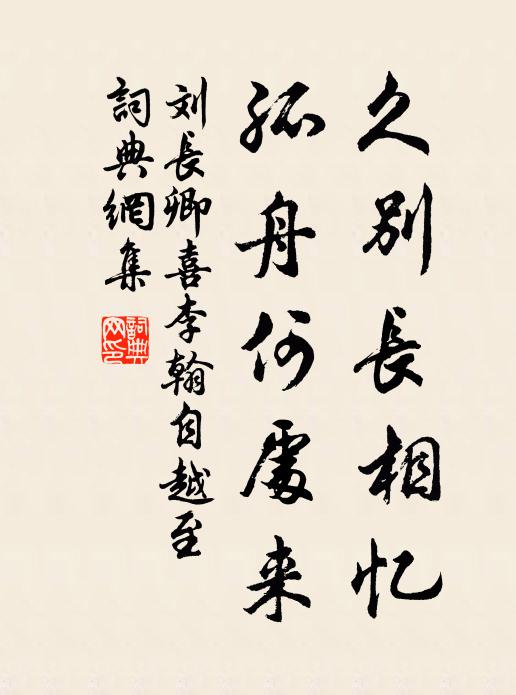 久别長相忆
孤舟何處来
刘長卿喜李翰自越至
詞典網集
詞典网印